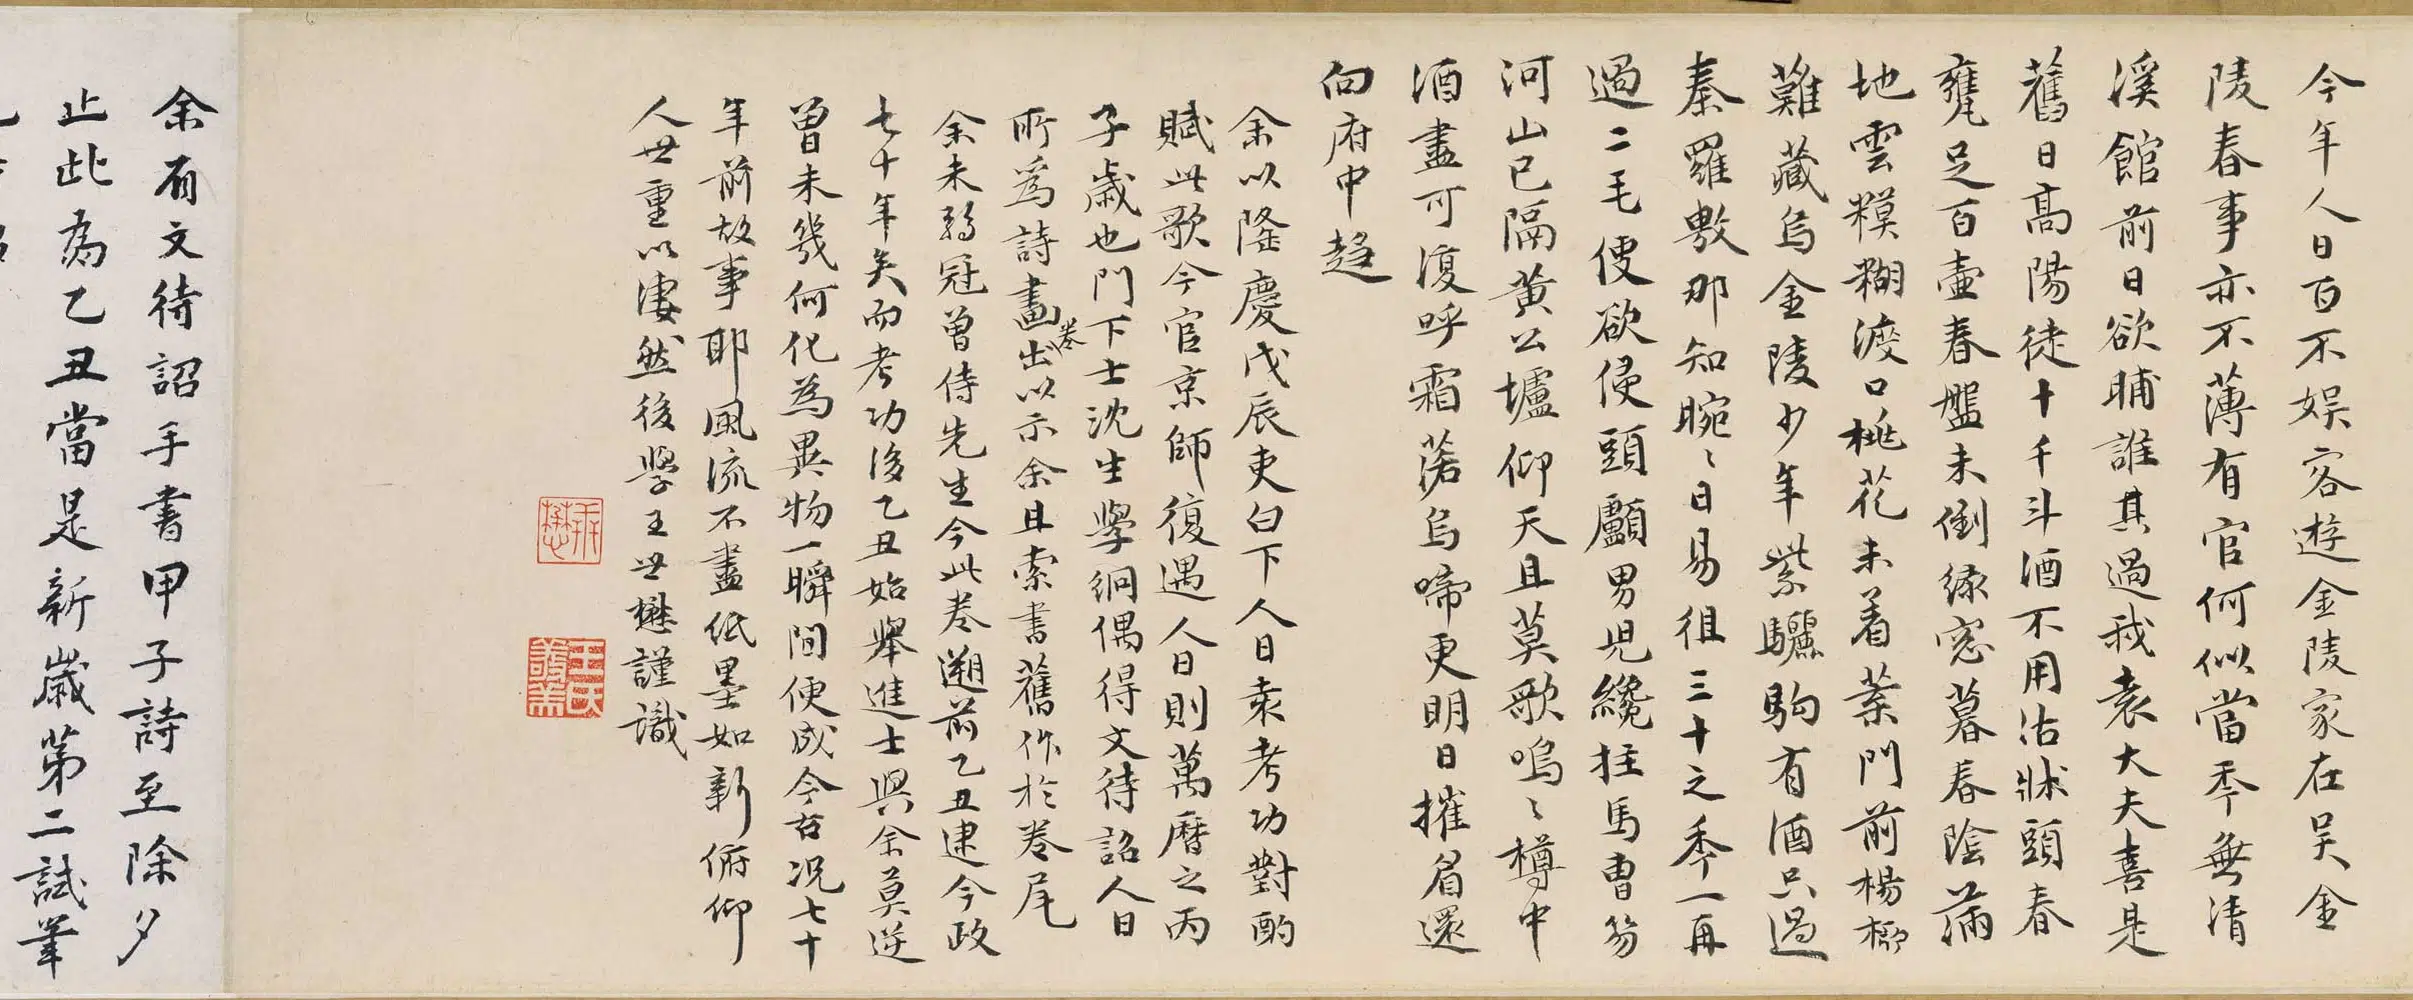 今年人日百不娱客遊金陵家在吴金
陵春事亦不薄有官何似當季無清
溪館前日欲晡誰其過我袁大夫喜是
舊日高陽徒十千斗酒不用沽牀頭春
甕足百壺春盤未倒緑窓暮春陰滿
地雲糢糊渡口桃花未着葉門前楊柳
難藏烏金陵少年紫驪駒有酒只過
秦羅敷那知晼〻日易徂三十之季一再
過二毛便欲侵頭顱男児纔拄馬曹笏
河山已隔黄公壚仰天且莫歌嗚〻樽中
酒盡可復呼霜落烏啼更明日摧眉還
向府中趨
余以隆慶戊辰吏白下人日袁考功對酌
賦此歌今官京師復遇人日則萬曆之丙
子歲也門下士沈生學絅偶得文待詔人日
所為詩畫卷出以示余且索書舊作於卷尾
余未弱冠曾侍先生今此卷遡前乙丑逮今政
七十年矣而考功後乙丑始舉進士與余莫逆
曾未幾何化為異物一瞬間便成今古况七十
年前故事耶風流不盡紙墨如新俯仰
人世重以凄然後學王世懋謹識
余有文待詔手書甲子詩至除夕
止此為乙丑當是新歲第二試筆